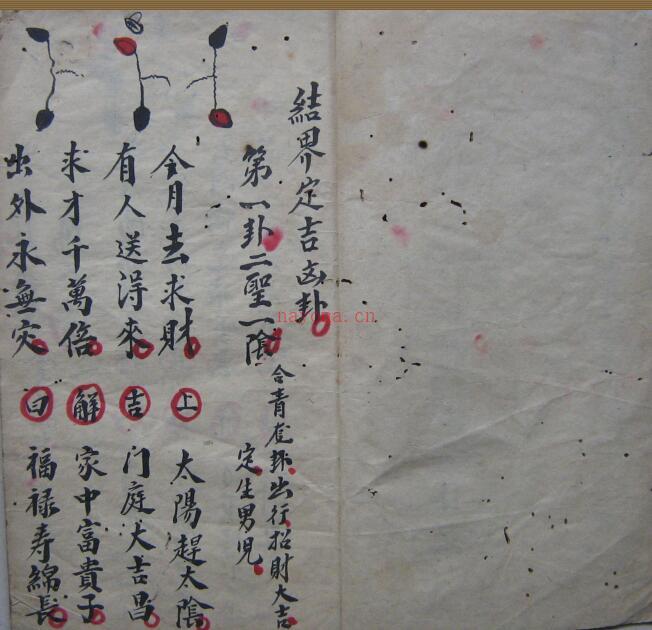 結界定吉凶卦
第一卦二聖一陰
合青龙卦出行招財大吉
定生男兒
今月去求財 上 太陽趕太陰
有人送得來 吉 门庭大吉昌
求才千萬倍 解 家中富貴子
出外永無灾 曰 福禄寿綿長
nayona.cn